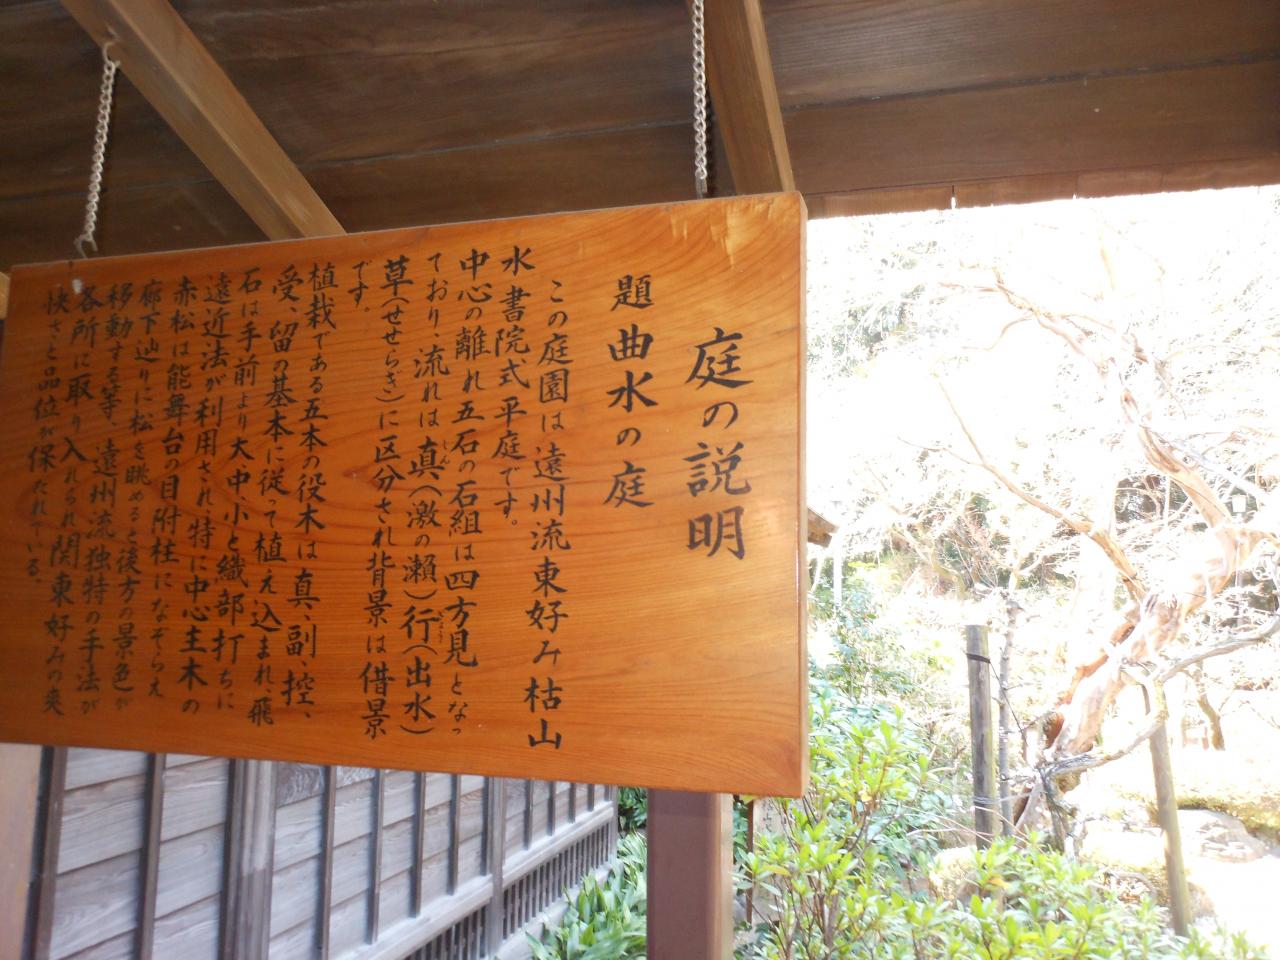 庭の説明
題 曲水の庭
この庭園は遠州流東好み枯山
水書院式平庭です。
中心の離れ五石の石組は四方見となっ
ており、流れは真(激の瀬)行(出水)
草(せせらぎ)に区分され背景は借景
です。
植栽である五本の役木は真、副、控、
受、留の基本に従って植え込まれ、飛
石は手前より大中小と織部打ちに
遠近法が利用され、特に中心主木の
赤松は能舞台の目附柱になぞらえ
廊下辿りに松を眺めると後方の景色が
移動する等、遠州流独特の手法が
各所に取り入れられ関東好みの爽
快さと品位が保たれている。